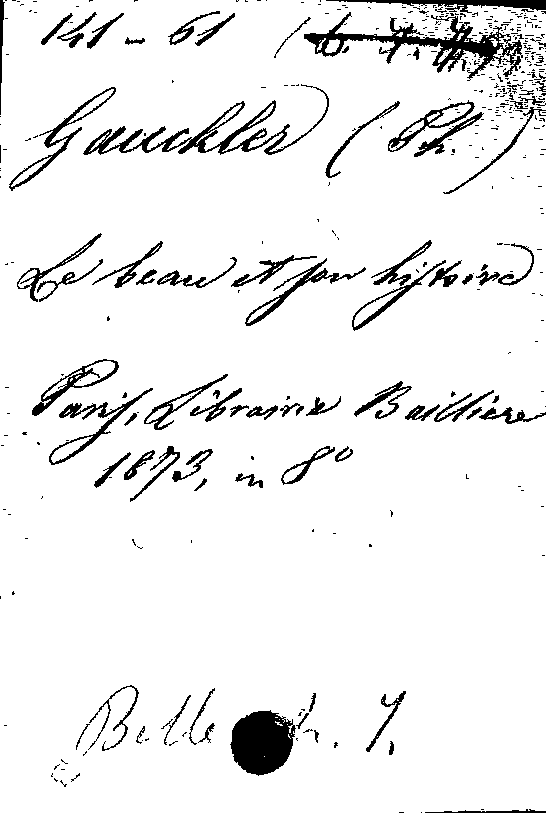 141-61
Gauckler (Ph.)
Le beau et son histoire
Paris, Librairie Baillière
1873, in 8º
Belle